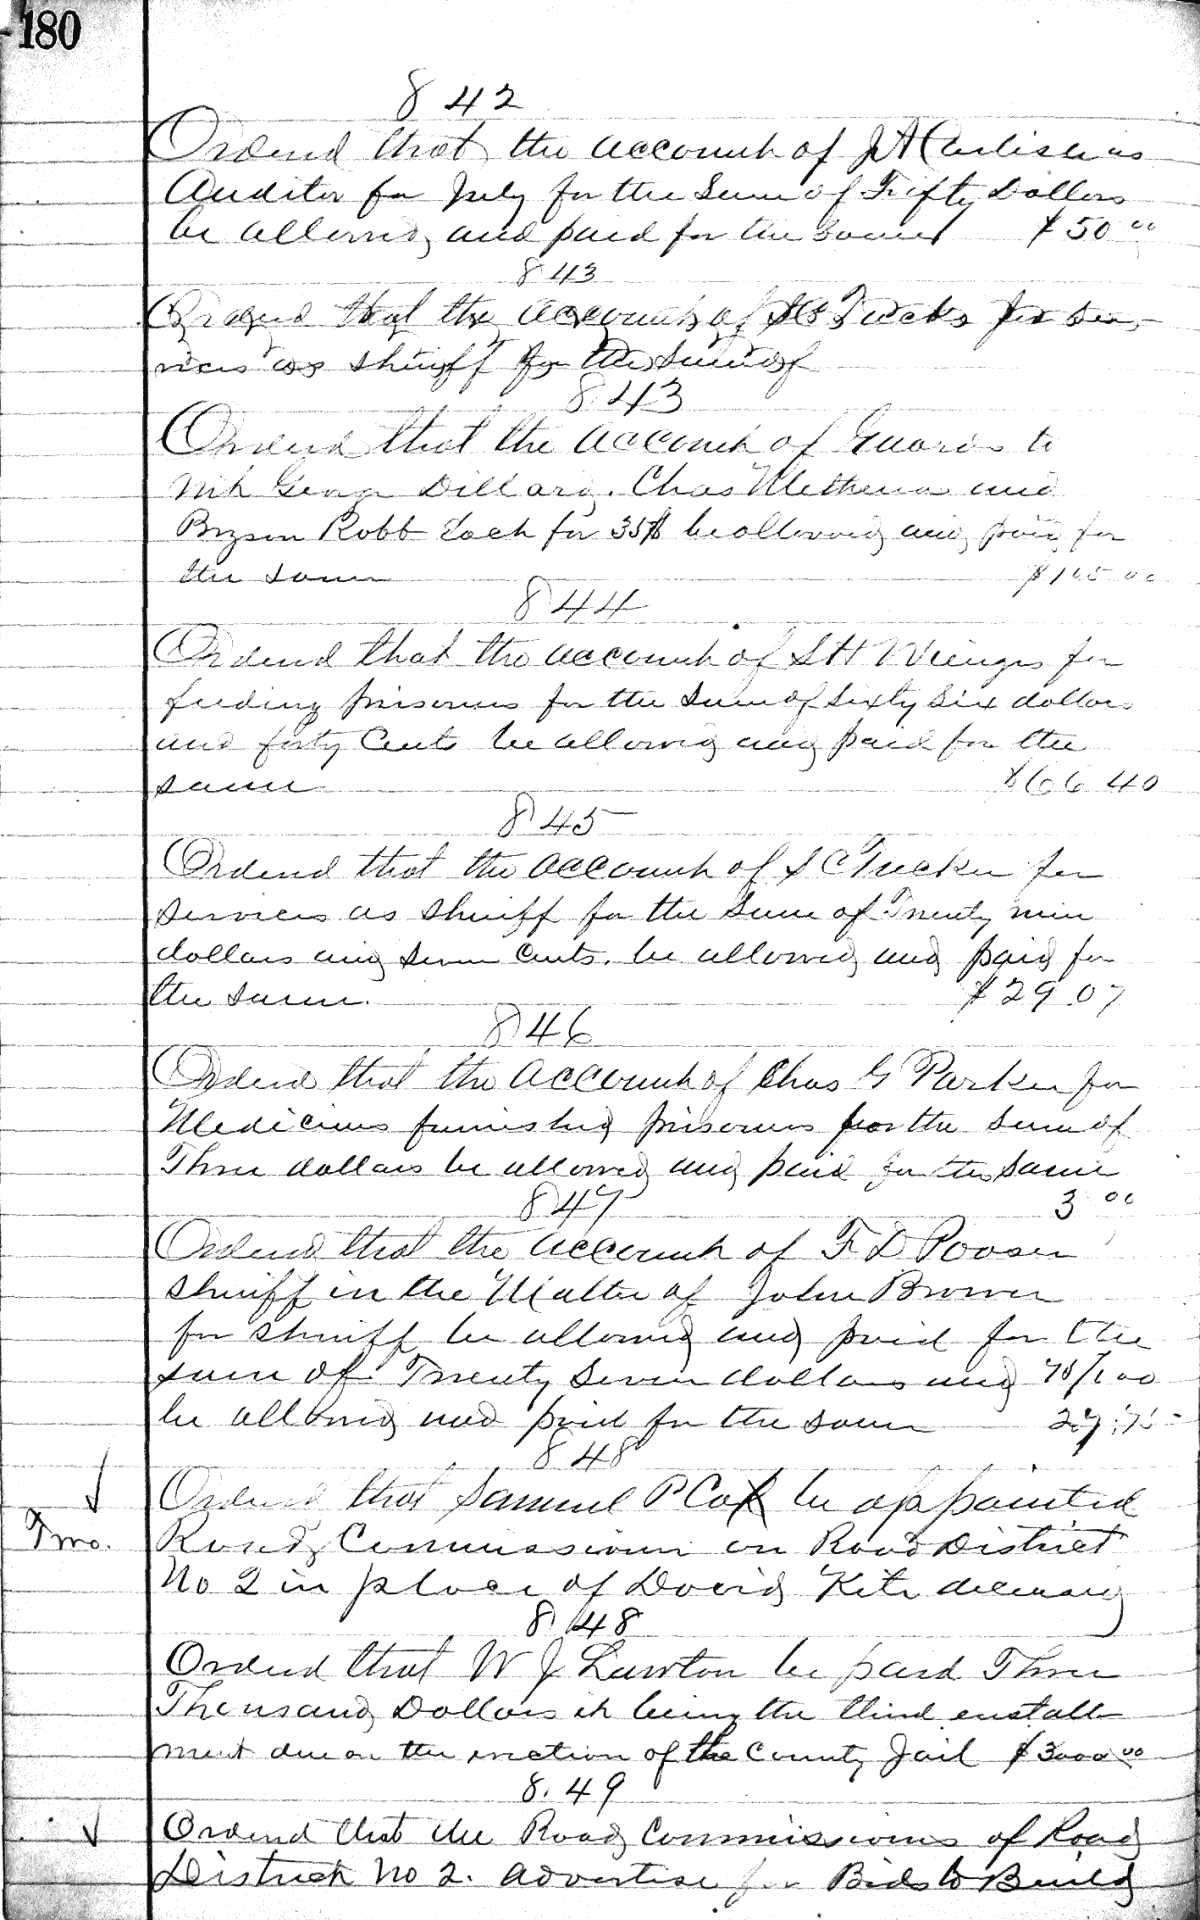 180
842
Ordered that the account of J A Carlisle as
Auditor for July for the Sum of Fifty Dollars
be allowed and paid for the same $50 00
843
Ordered that the account of S C Tucker for ser-
vices as sheriff for the Sum of
843
Ordered that the account of Guards to
wit George Dillard. Chas Methena and
Bryson Robb Each for 35$ be allowed and paid for
the same $105 00
844
Ordered that the account of S H Wienges for
feeding prisoners for the sum of sixty six dollars
and forty Cents be allowed and paid for the
same $66 40
845
Ordered that the account of S C Tucker for
services as sheriff for the Sum of Twenty nine
dollars and seven Cents. be allowed and paid for
the same. $29.07
846
Ordered that the account of Chas G Parker for
Medicines furnished prisoners for the sum of
Three dollars be allowed and paid for the same
3 00
847
Ordered that the account of F D Pooser
sheriff in the Matter of John Brown
for sheriff be allowed and paid for the
sum of Twenty Seven dollars and 75/100
be allowed and paid for the same 27.75
848
Ordered that Samuel P Cox be appointed
Two. Road Commissioner on Road District
No 2 in place of David Kite deceased
848
Ordered that W J Lawton be paid Three
Thousand Dollars it being the third install
ment due on the erection of the County Jail $3000 00
8.49
Ordered that the Road Commissioners of Road
District No 2. advertise for Bids to Build